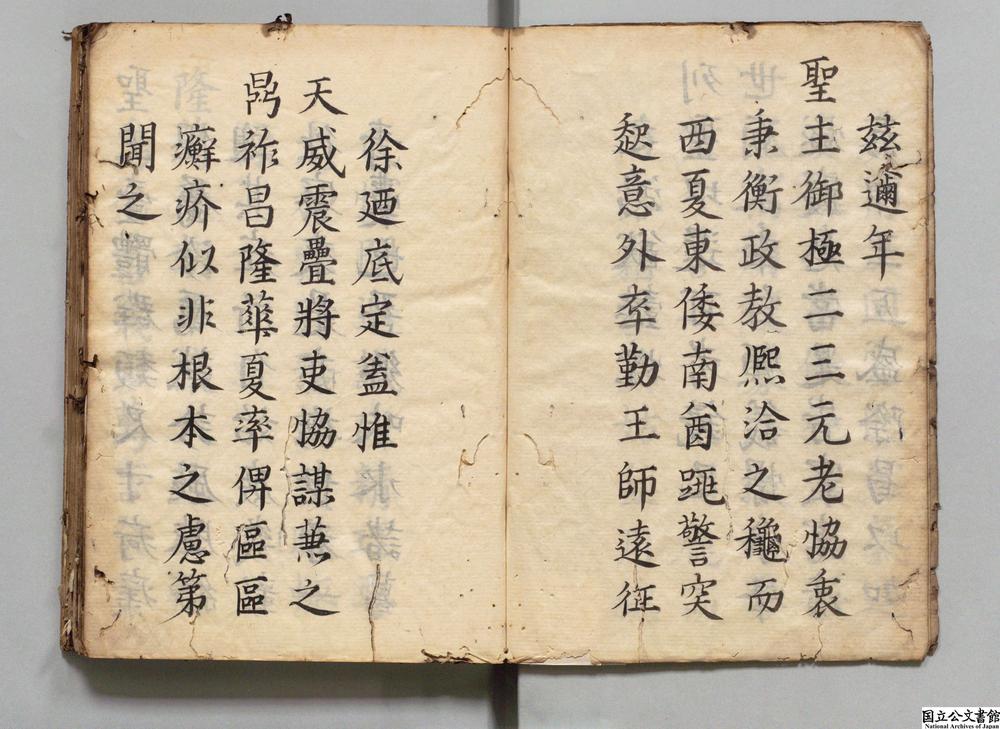 兹邇年
聖主御極二三元老恊衷
秉衡政敎熈洽之穐而
西夏東倭南酋跳警突
起意外卒勤王師遠征
徐廼底定盖惟
天威震疊將吏恊謀兼之
鼎祚昌隆華夏率俾區區
癬疥似非根本之慮第
聞之
国立公文書館
National Archives of Japan